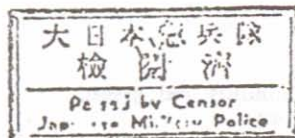 大日本憲兵隊
檢閲濟
Passed by Censor
Japanese Military Police